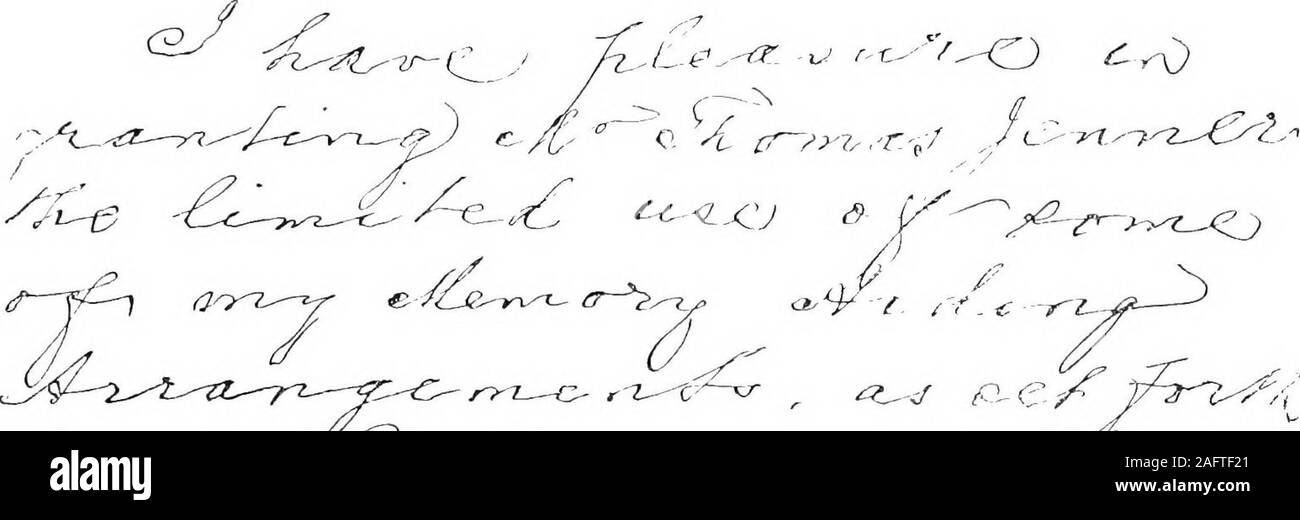 I have pleasure in
granting Mr Thomas Jenner
the limited use of some
of my Memory Aiding
Arrangements, as set forth
alamy
Image ID: 2AFTF21
www.alamy.com